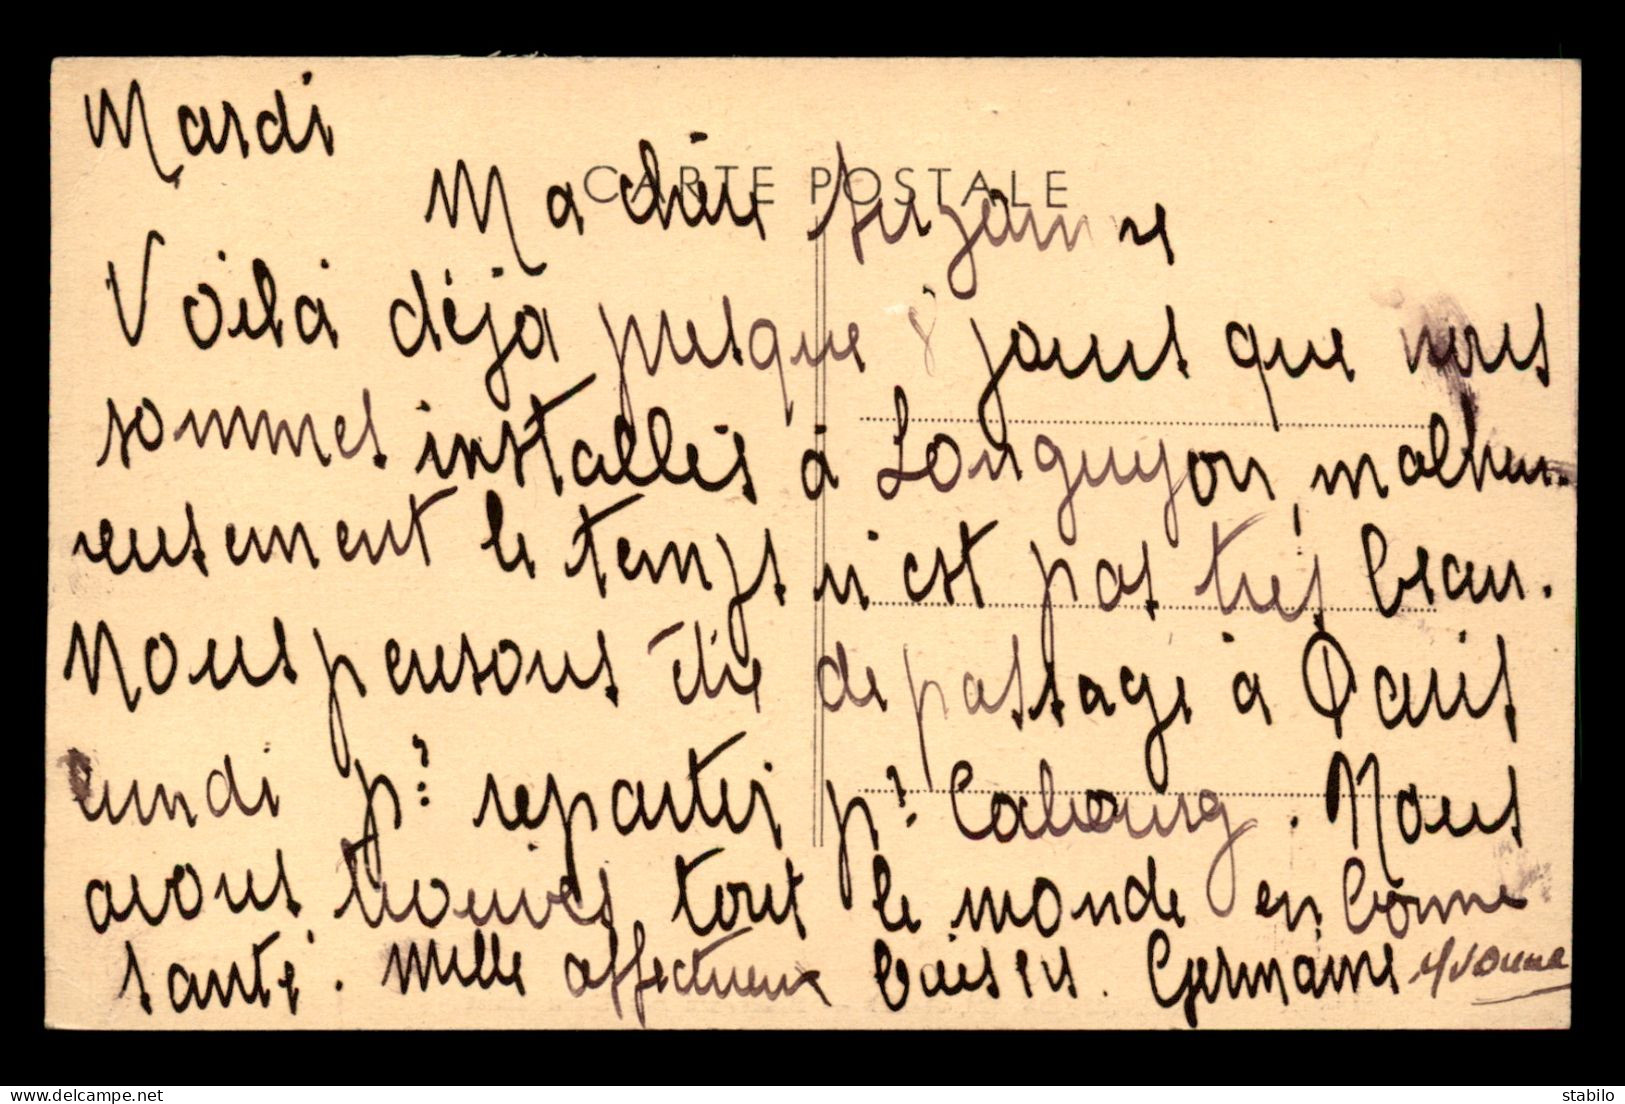 Mardi
CARTE POSTALE
Ma chère Suzanne
Voilà déjà presque 8 jours que nous
sommes installés à Longuyon, malheu-
reusement le temps n'est pas très beau.
Nous pensons être de passage à Paris
lundi pr repartir pr Cabourg. Nous
avons trouvés tout le monde en bonne
santé. Mille affectueux baisers. Germaine Yvonne
www.delcampe.net
stabilo